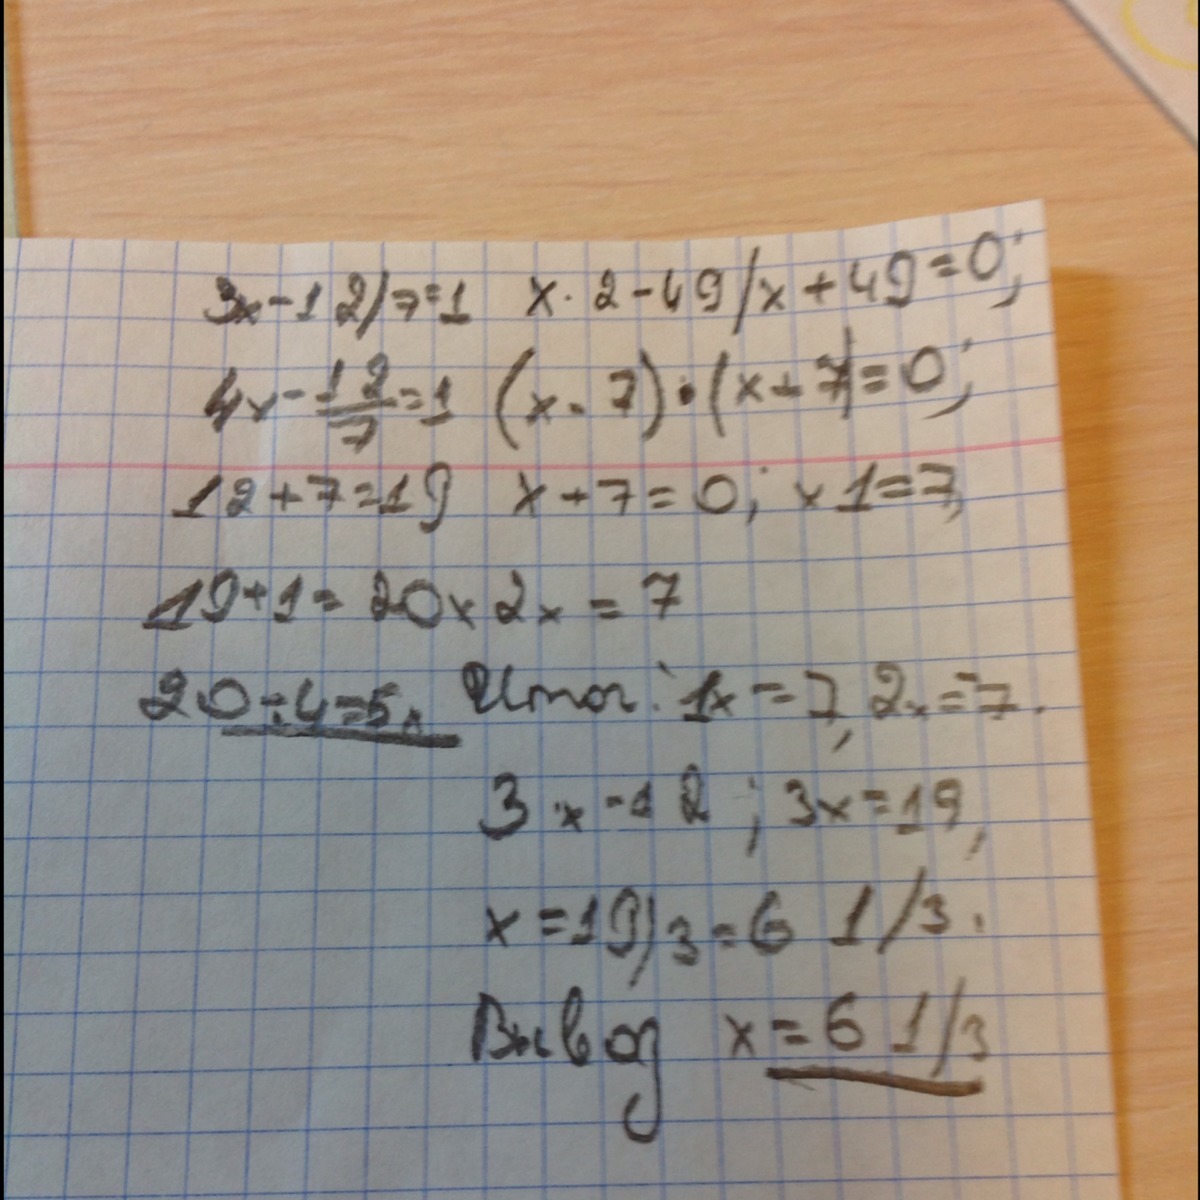 3x-12/7=1 x·2-49/x+49=0;
4x-12/7=1 (x-7)·(x+7)=0;
12+7=19 x+7=0; x1=7,
19+1=20 x2x=7
20÷4=5. Итог: 1x=7, 2x=7.
3x-12; 3x=19,
x=19/3=6 1/3.
Вывод x=6 1/3